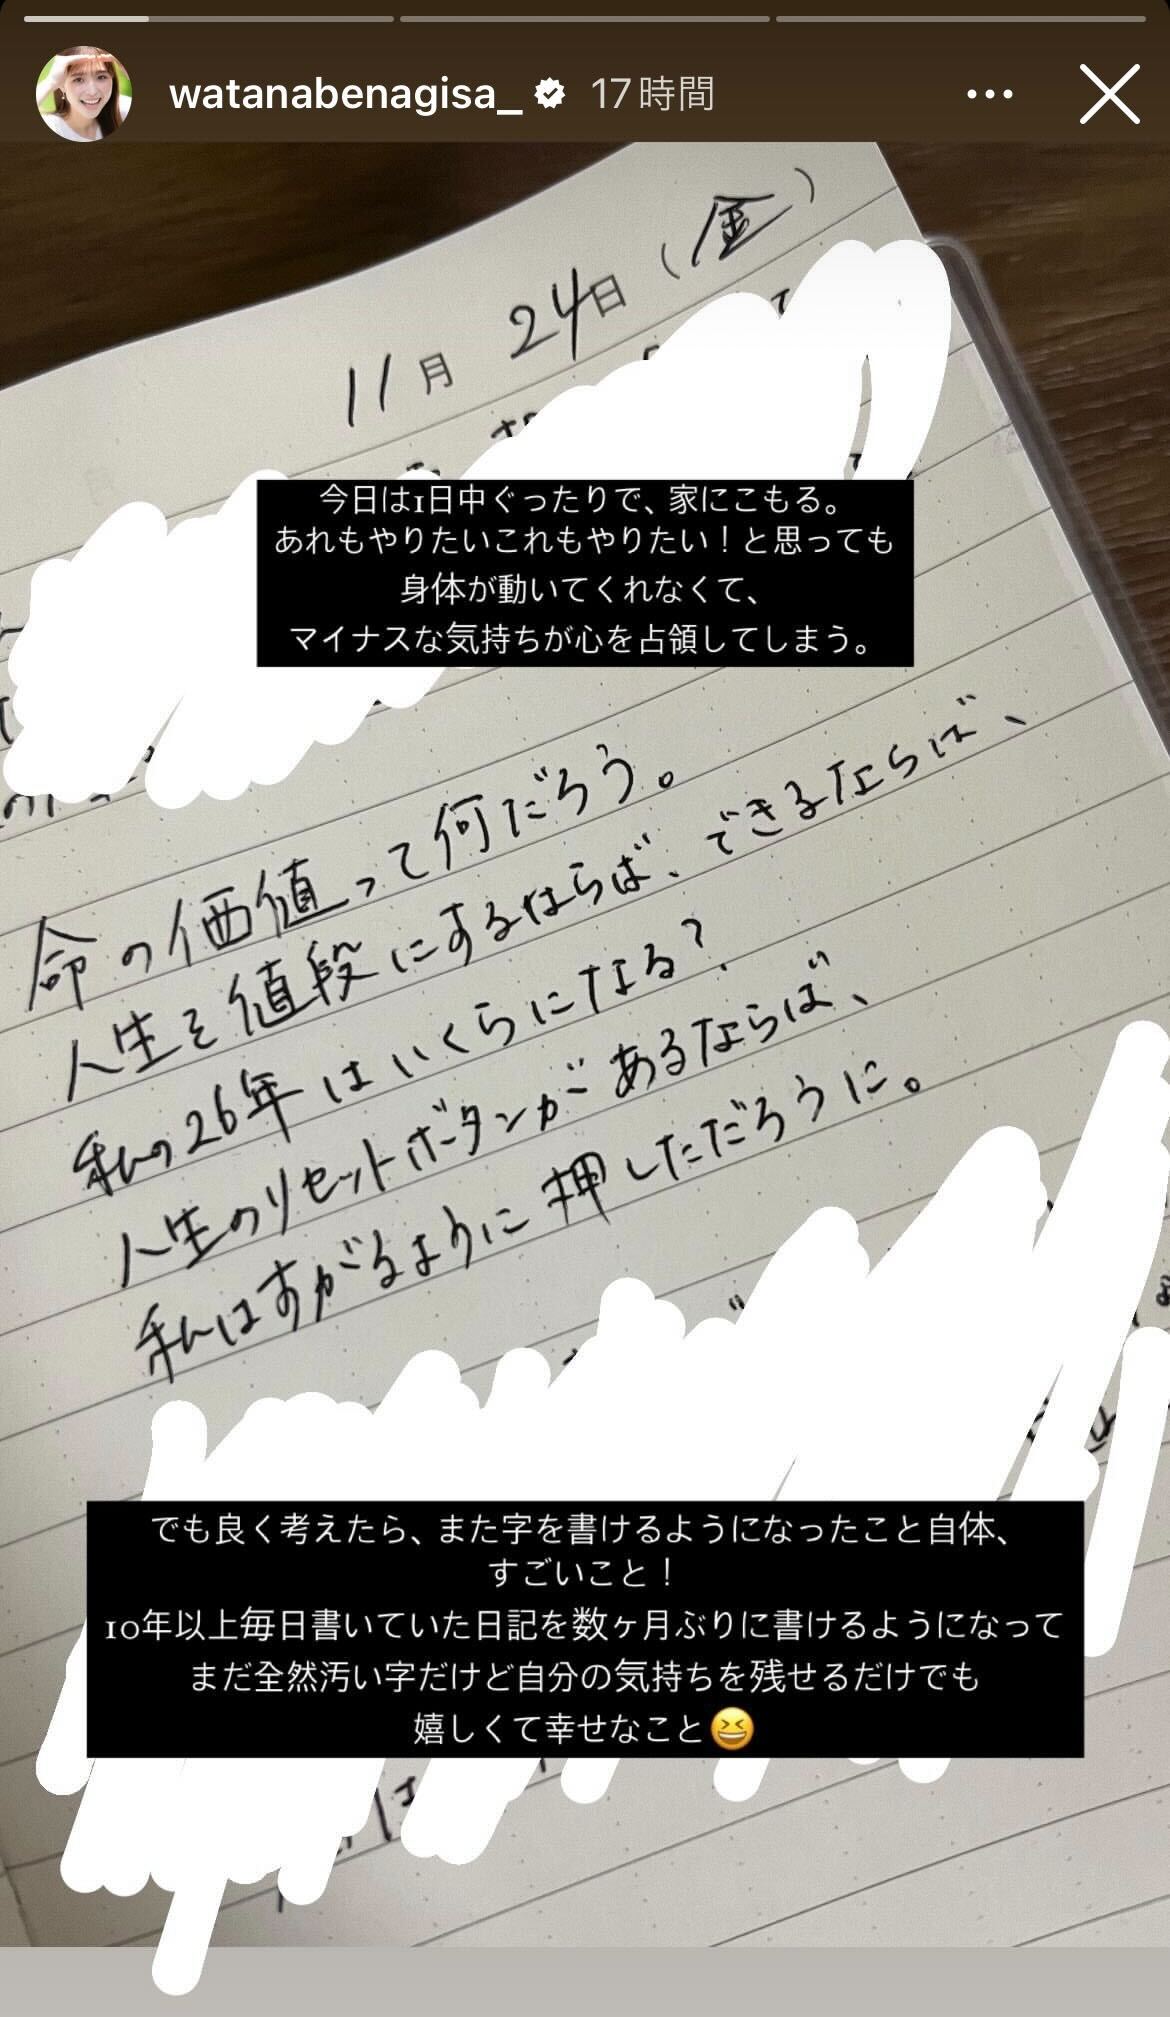 watanabenagisa_ 17時間
11月 24日 (金)
今日は1日中ぐったりで、家にこもる。
あれもやりたいこれもやりたい！と思っても
身体が動いてくれなくて、
マイナスな気持ちが心を占領してしまう。
命の価値って何だろう。
人生を値段にするならば、できるならば、
私の26年はいくらになる？
人生のリセットボタンがあるならば、
私はすがるように押しただろうに。
でも良く考えたら、また字を書けるようになったこと自体、
すごいこと！
10年以上毎日書いていた日記を数ヶ月ぶりに書けるようになって
まだ全然汚い字だけど自分の気持ちを残せるだけでも
嬉しくて幸せなこと😆